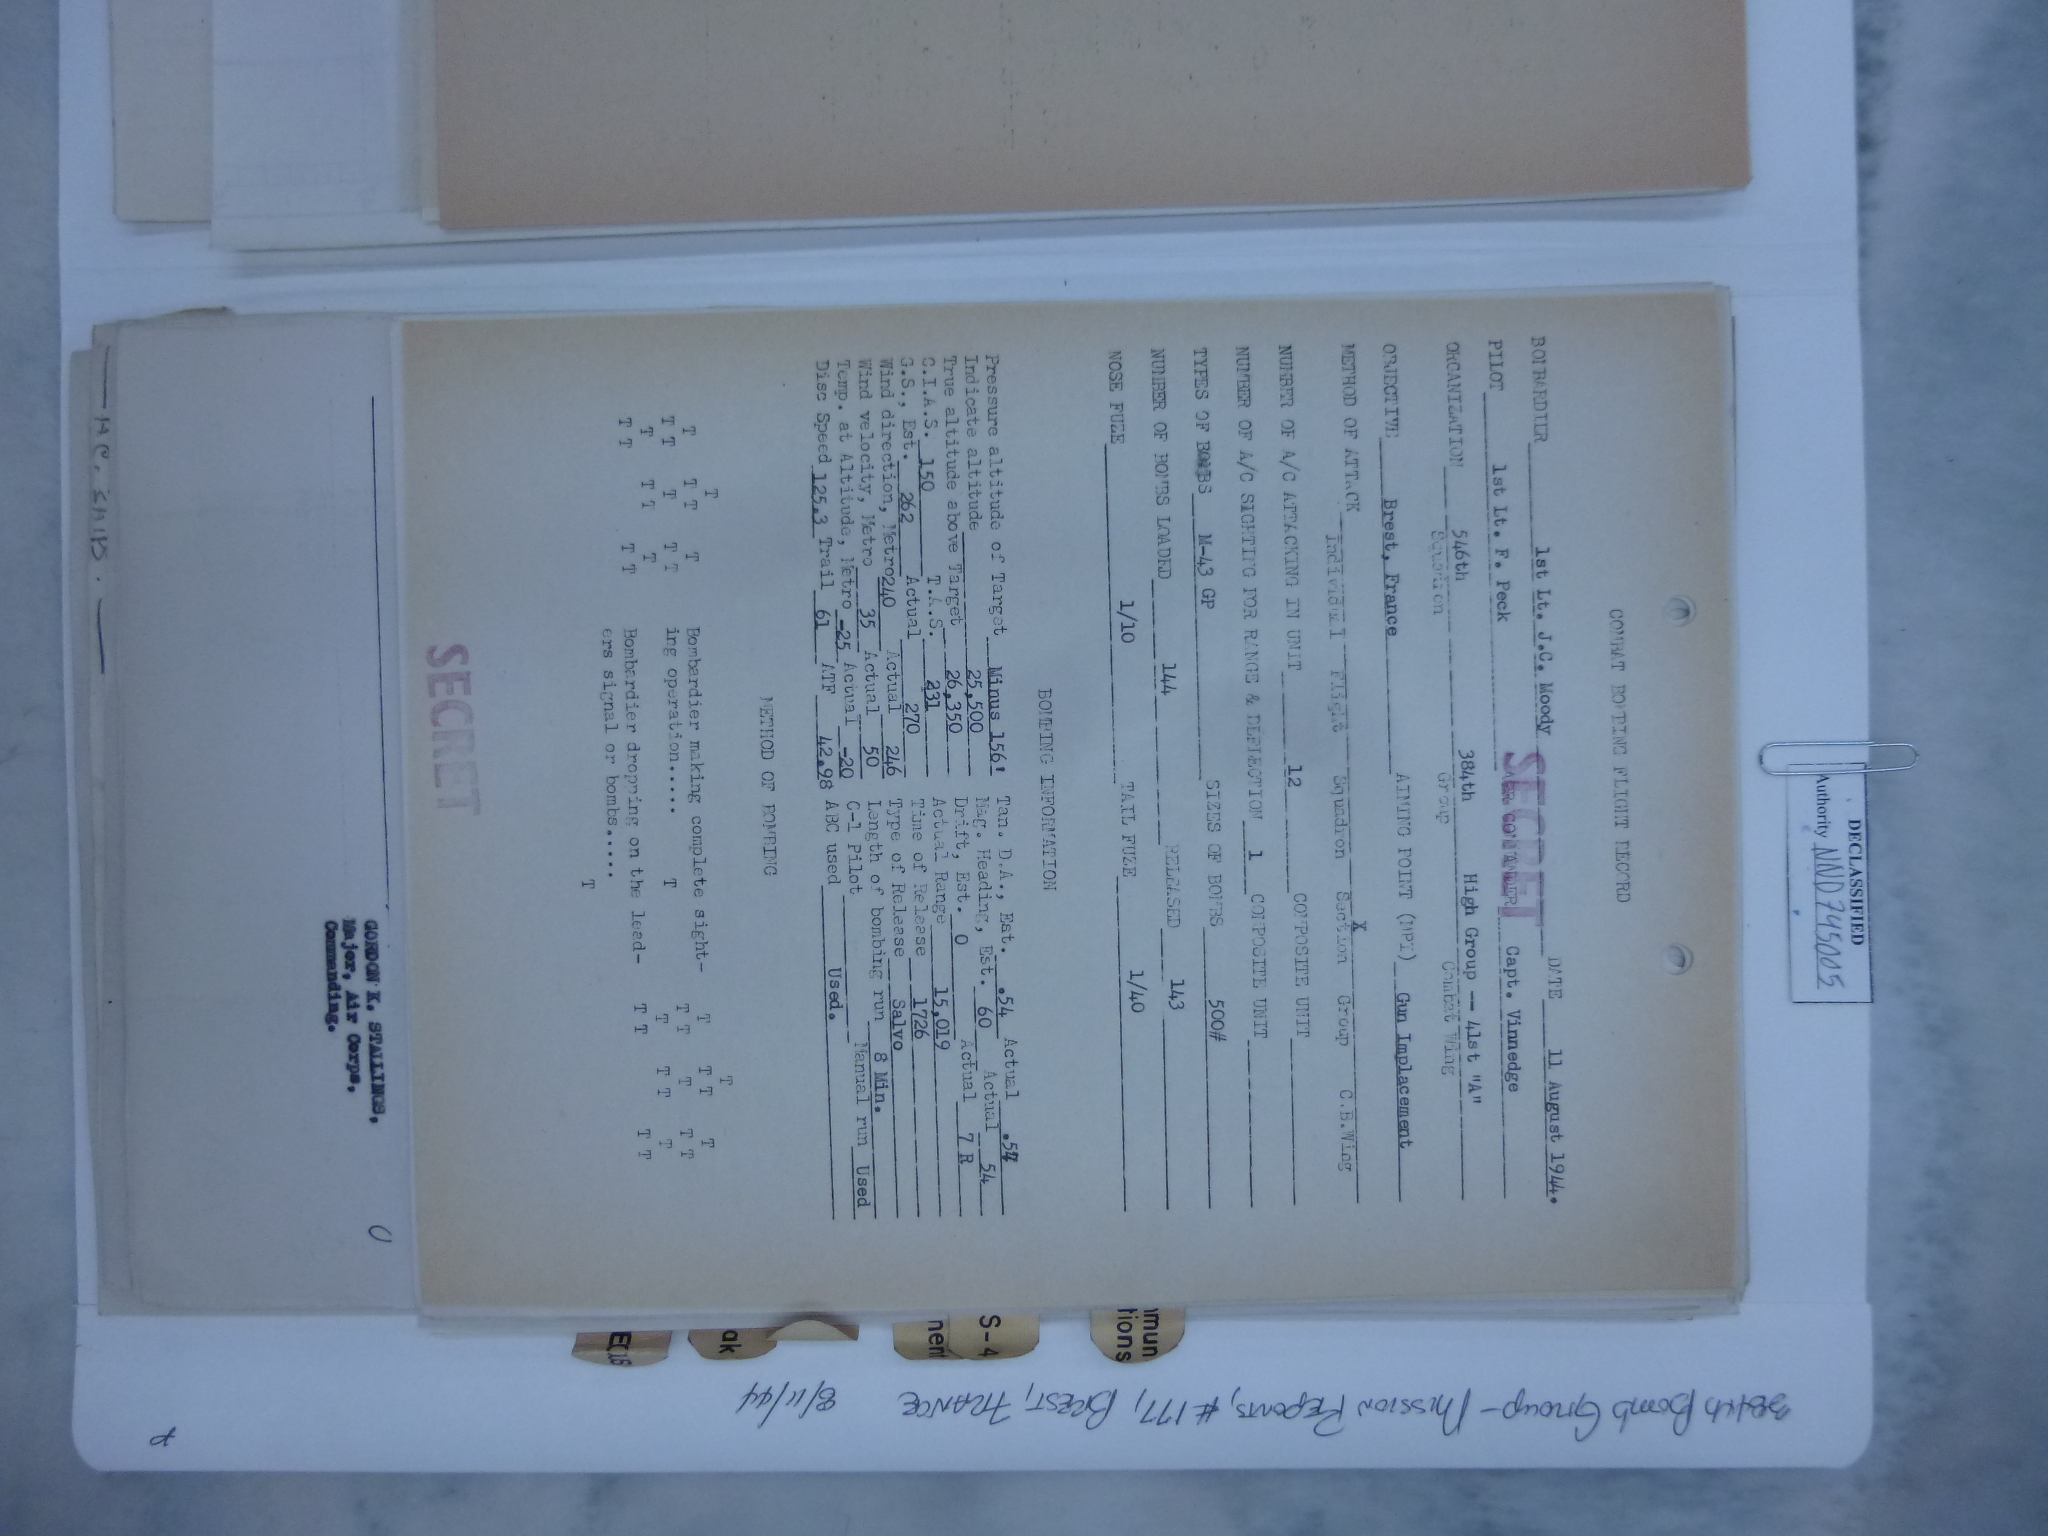 DECLASSIFIED
Authority NND 745005
COMBAT BOMBING FLIGHT RECORD
SECRET
BOMBARDIER 1st Lt. J.C. Moody DATE 11 August 1944.
PILOT 1st Lt. F. Peck AIR COMMANDER Capt. Vinnedge
ORGANIZATION 546th 384th High Group -- 41st "A"
Squadron Group Combat Wing
OBJECTIVE Brest, France AIMING POINT (MPI) Gun Implacement
X
METHOD OF ATTACK Individual Flight Squadron Section Group C.B.Wing
NUMBER OF A/C ATTACKING IN UNIT 12 COMPOSITE UNIT
NUMBER OF A/C SIGHTING FOR RANGE & DEFLECTION 1 COMPOSITE UNIT
TYPES OF BOMBS M-43 GP SIZES OF BOMBS 500#
NUMBER OF BOMBS LOADED 144 RELEASED 143
NOSE FUZE 1/10 TAIL FUZE 1/40
BOMBING INFORMATION
Pressure altitude of Target Minus 156' Tan. D.A., Est. .54 Actual .54
Indicate altitude 25,500 Mag. Heading, Est. 60 Actual 54
True altitude above Target 26,350 Drift, Est. 0 Actual 7 R
C.I.A.S. 150 T.A.S. 231 Actual Range 15,019
G.S., Est. 262 Actual 270 Time of Release 1726
Wind direction, Metro 240 Actual 246 Type of Release Salvo
Wind velocity, Metro 35 Actual 50 Length of bombing run 8 Min.
Temp. at Altitude, Metro -25 Actual -20 C-1 Pilot Manual run Used
Disc Speed 125.3 Trail 61 ATF 42.98 ABC used Used.
METHOD OF BOMBING
T T
T T T T T Bombardier making complete sight- T T T T
T T T T T ing operation..... T T T T T
T T T T T T T T
T T T T Bombardier dropping on the lead- T T T T
ers signal or bombs..... T
SECRET
GORDON K. STALLINGS,
Major, Air Corps,
Commanding.
mmun
tions
S-4
nent
ak
384th Bomb Group - Mission Reports, #177, BREST, FRANCE 8/11/44